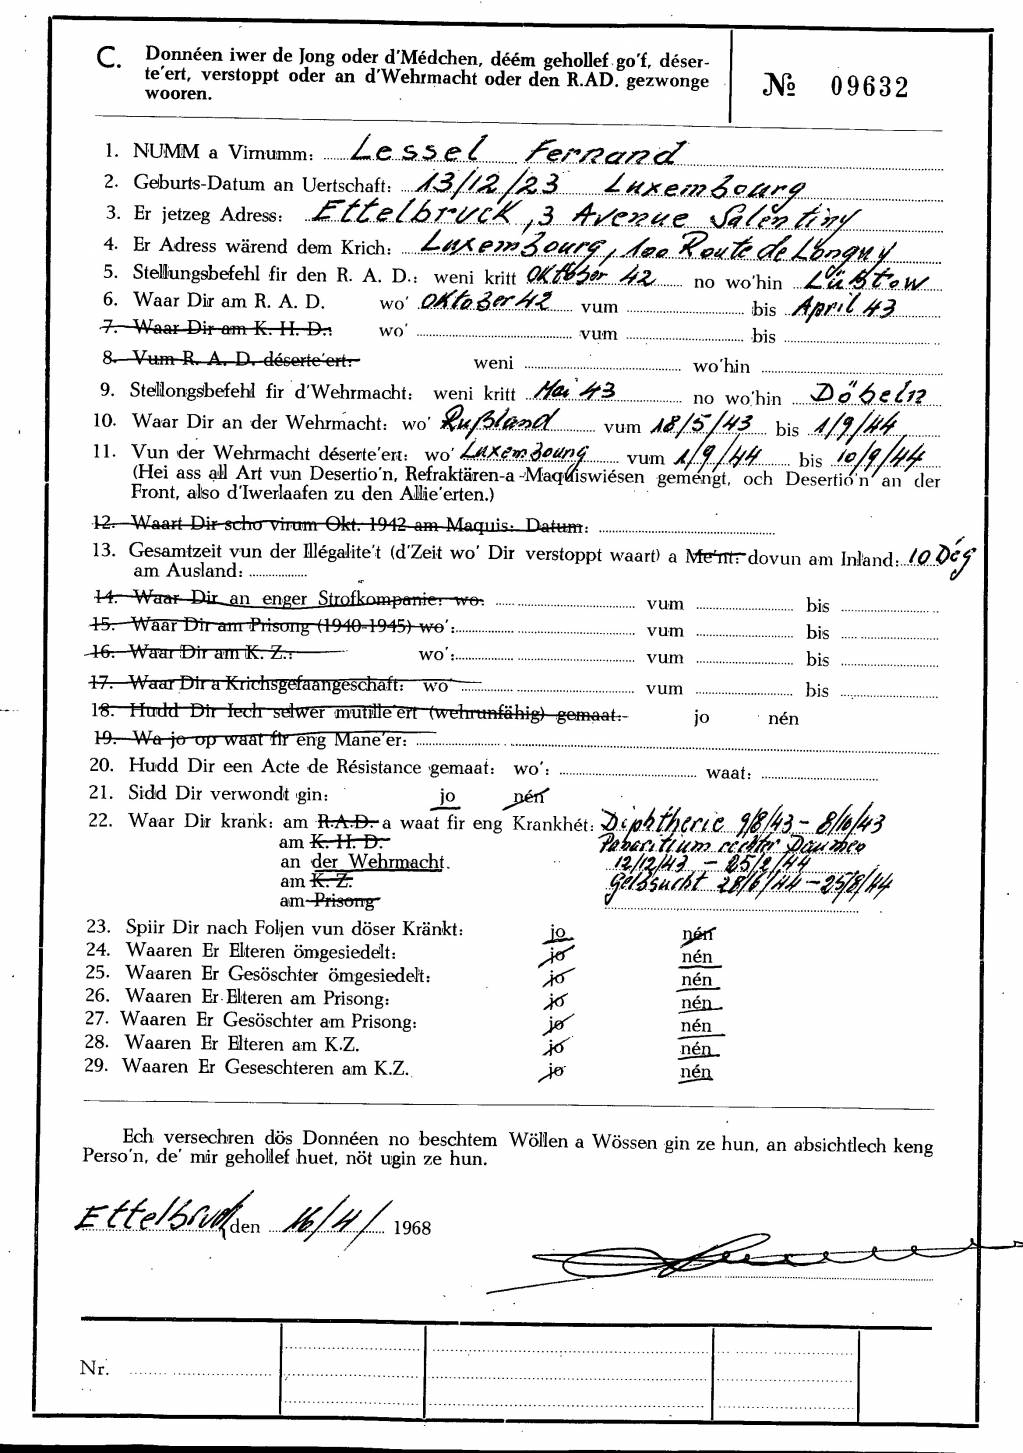 C. Donnéen iwer de Jong oder d'Médchen, déém gehollef go'f, déser-
te'ert, verstoppt oder an d'Wehrmacht oder den R.AD. gezwonge
wooren.
№ 09632
1. NUMM a Virnumm: Lessel Fernand
2. Geburts-Datum an Uertschaft: 13/12/23 Luxembourg
3. Er jetzeg Adress: Ettelbruck, 3 Avenue Salentiny
4. Er Adress wärend dem Krich: Luxembourg, 100 Route de Longwy
5. Stellungsbefehl fir den R. A. D.: weni kritt Oktober 42 no wo'hin Lüßtow
6. Waar Dir am R. A. D. wo' Oktober 42 vum bis April 43
7. Waar Dir am K. H. D.: wo' vum bis
8. Vum R. A. D. déserte'ert: weni wo'hin
9. Stellongsbefehl fir d'Wehrmacht: weni kritt Mai 43 no wo'hin Döbeln
10. Waar Dir an der Wehrmacht: wo' Rußland vum 18/5/43 bis 1/9/44
11. Vun der Wehrmacht déserte'ert: wo' Luxembourg vum 1/9/44 bis 10/9/44
(Hei ass all Art vun Desertio'n, Refraktären-a -Maquiswiésen gemengt, och Desertio'n an der
Front, also d'Iwerlaafen zu den Allie'erten.)
12. Waart Dir scho virum Okt. 1942 am Maquis: Datum:
13. Gesamtzeit vun der Illégalite't (d'Zeit wo' Dir verstoppt waart) a Me'nt: dovun am Inland: 10 Deg
am Ausland:
14. Waar Dir an enger Strofkompanie: wo: vum bis
15. Waar Dir am Prisong (1940-1945) wo': vum bis
16. Waar Dir am K. Z.: wo': vum bis
17. Waar Dir a Krichsgefaangeschaft: wo vum bis
18. Hudd Dir Iech selwer mutille'ert (wehrunfähig) gemaat: jo nén
19. Wa jo op waat fir eng Mane'er:
20. Hudd Dir een Acte de Résistance gemaat: wo': waat:
21. Sidd Dir verwondt gin: jo nén
22. Waar Dir krank: am R.A.D. a waat fir eng Krankhét: Diphtherie 9/8/43 - 8/10/43
am K. H. D. Panaritium rechter Daumen
an der Wehrmacht. 12/12/43 - 25/2/44
am K. Z. Gelbsucht 28/6/44 - 25/8/44
am Prisong
23. Spiir Dir nach Foljen vun döser Kränkt: jo nén
24. Waaren Er Elteren ömgesiedelt: jo nén
25. Waaren Er Gesöschter ömgesiedelt: jo nén
26. Waaren Er Elteren am Prisong: jo nén
27. Waaren Er Gesöschter am Prisong: jo nén
28. Waaren Er Elteren am K.Z. jo nén
29. Waaren Er Geseschteren am K.Z. jo nén
Ech versechren dös Donnéen no beschtem Wöllen a Wössen gin ze hun, an absichtlech keng
Perso'n, de' mir gehollef huet, nöt ugin ze hun.
Ettelbruck den 16/4/ 1968
Nr.